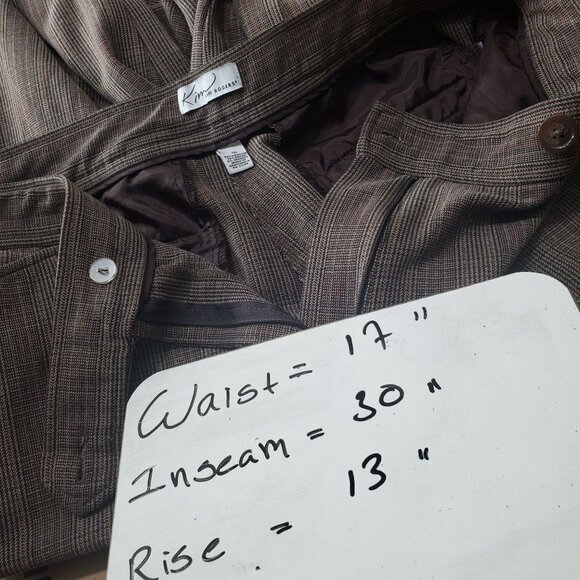 Kim
ROGERS®
Waist = 17 "
Inseam = 30 "
Rise = 13 "